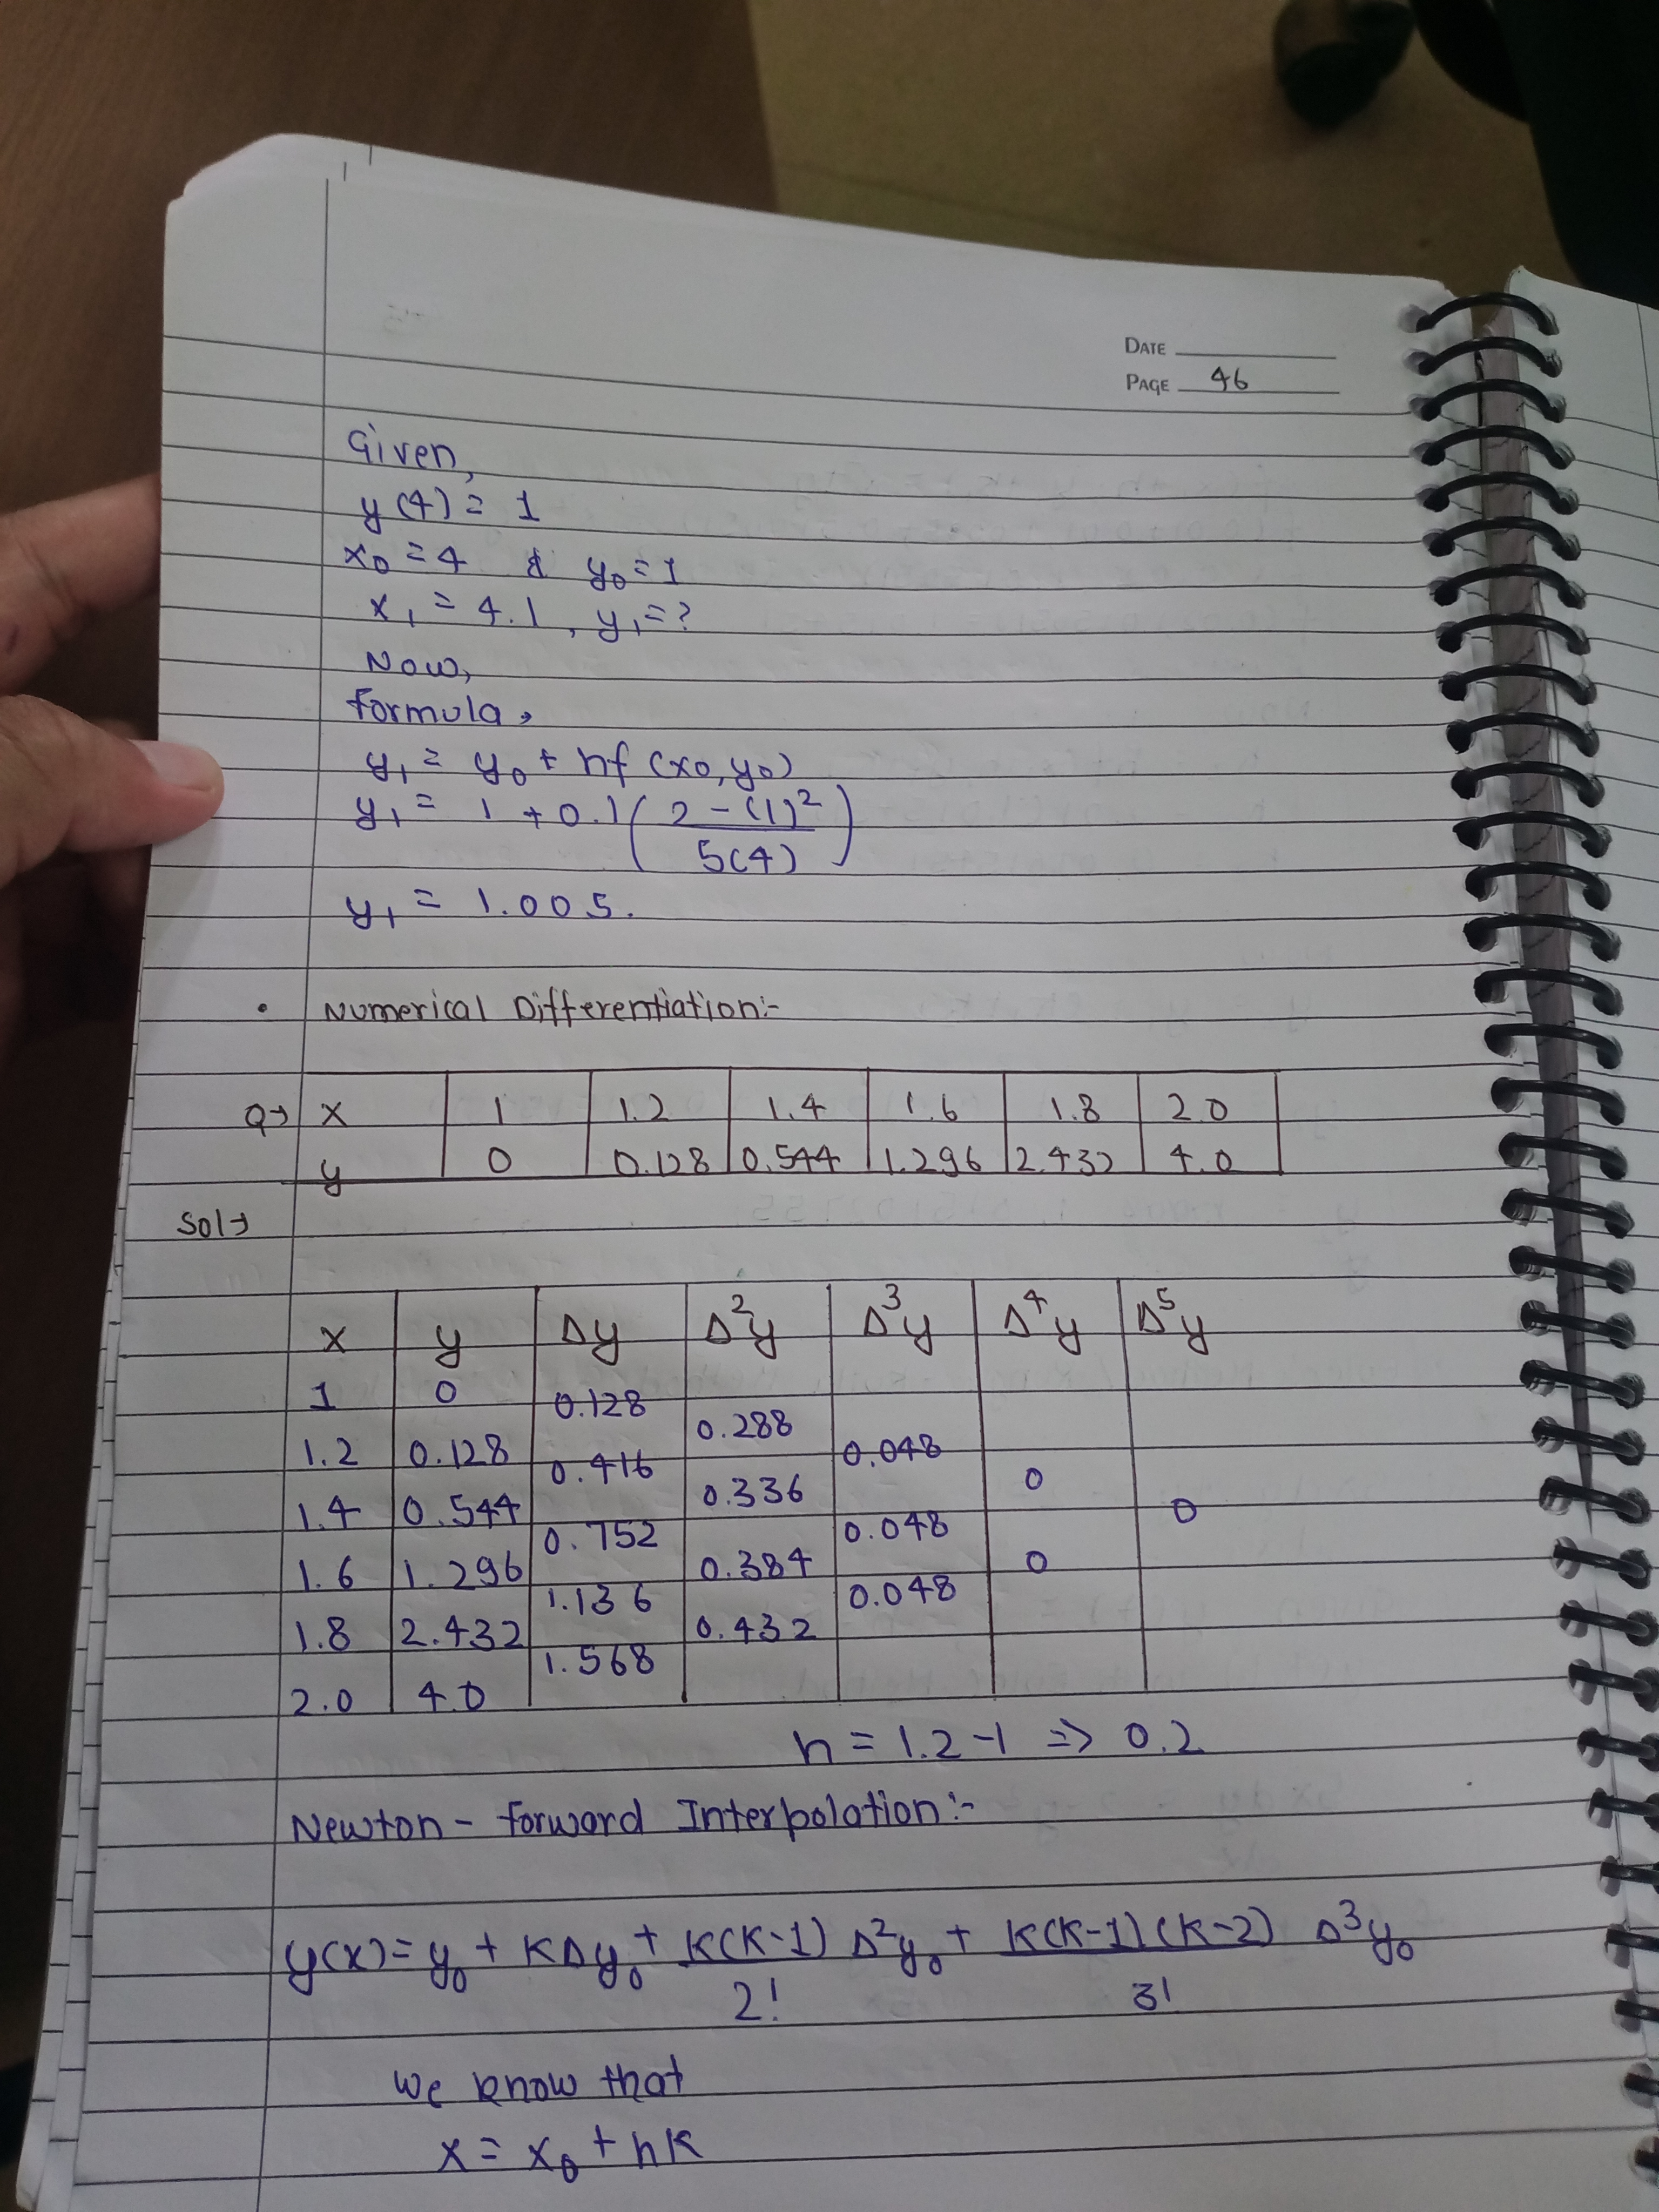 DATE
PAGE 46
Given,
y(4) = 1
x₀ = 4 & y₀ = 1
x₁ = 4.1, y₁ = ?
Now,
formula,
y₁ = y₀ + hf (x₀, y₀)
y₁ = 1 + 0.1 ( 2 - (1)² / 5(4) )
y₁ = 1.005.
• Numerical Differentiation:-
Q→ x 1 1.2 1.4 1.6 1.8 2.0
y 0 0.128 0.544 1.296 2.432 4.0
Sol→
x y Δy Δ²y Δ³y Δ⁴y Δ⁵y
1 0
0.128
0.288
1.2 0.128 0.048
0.416 0
0.336
1.4 0.544 0
0.752 0.048
0.384 0
1.6 1.296
1.136 0.048
1.8 2.432 0.432
1.568
2.0 4.0
h = 1.2 - 1 => 0.2
Newton - forward Interpolation:-
y(x) = y₀ + KΔy₀ + K(K-1) / 2! Δ²y₀ + K(K-1)(K-2) / 3! Δ³y₀
we know that
x = x₀ + hK